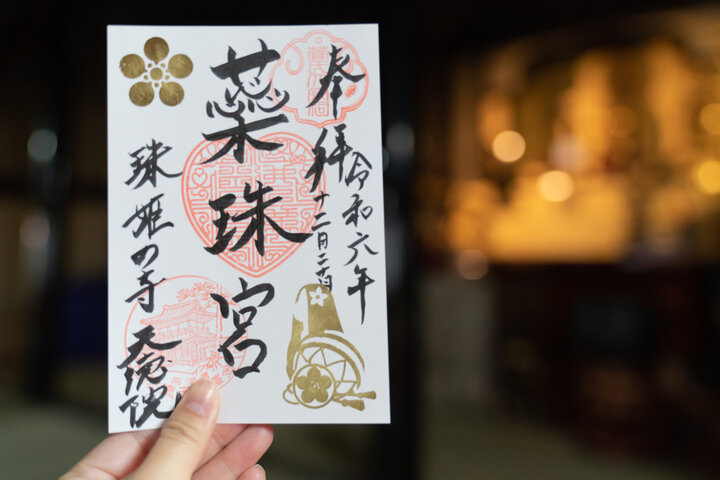 奉拝
令和六年
十二月二
蘂珠宮
珠姫の寺 天徳院